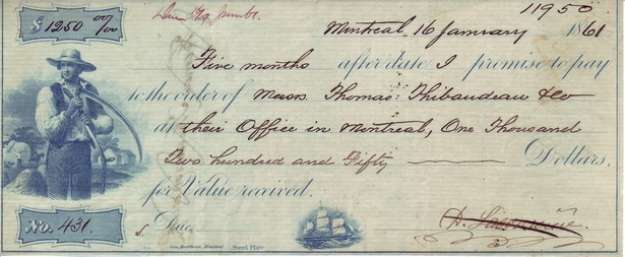 11950
$ 1250 00/100
Montreal, 16 January 1861
Five months after date I promise to pay
to the order of Messrs Thomas Thibaudeau & Co
at their Office in Montreal, One Thousand
Two hundred and Fifty Dollars.
for Value received.
No. 431.
Due